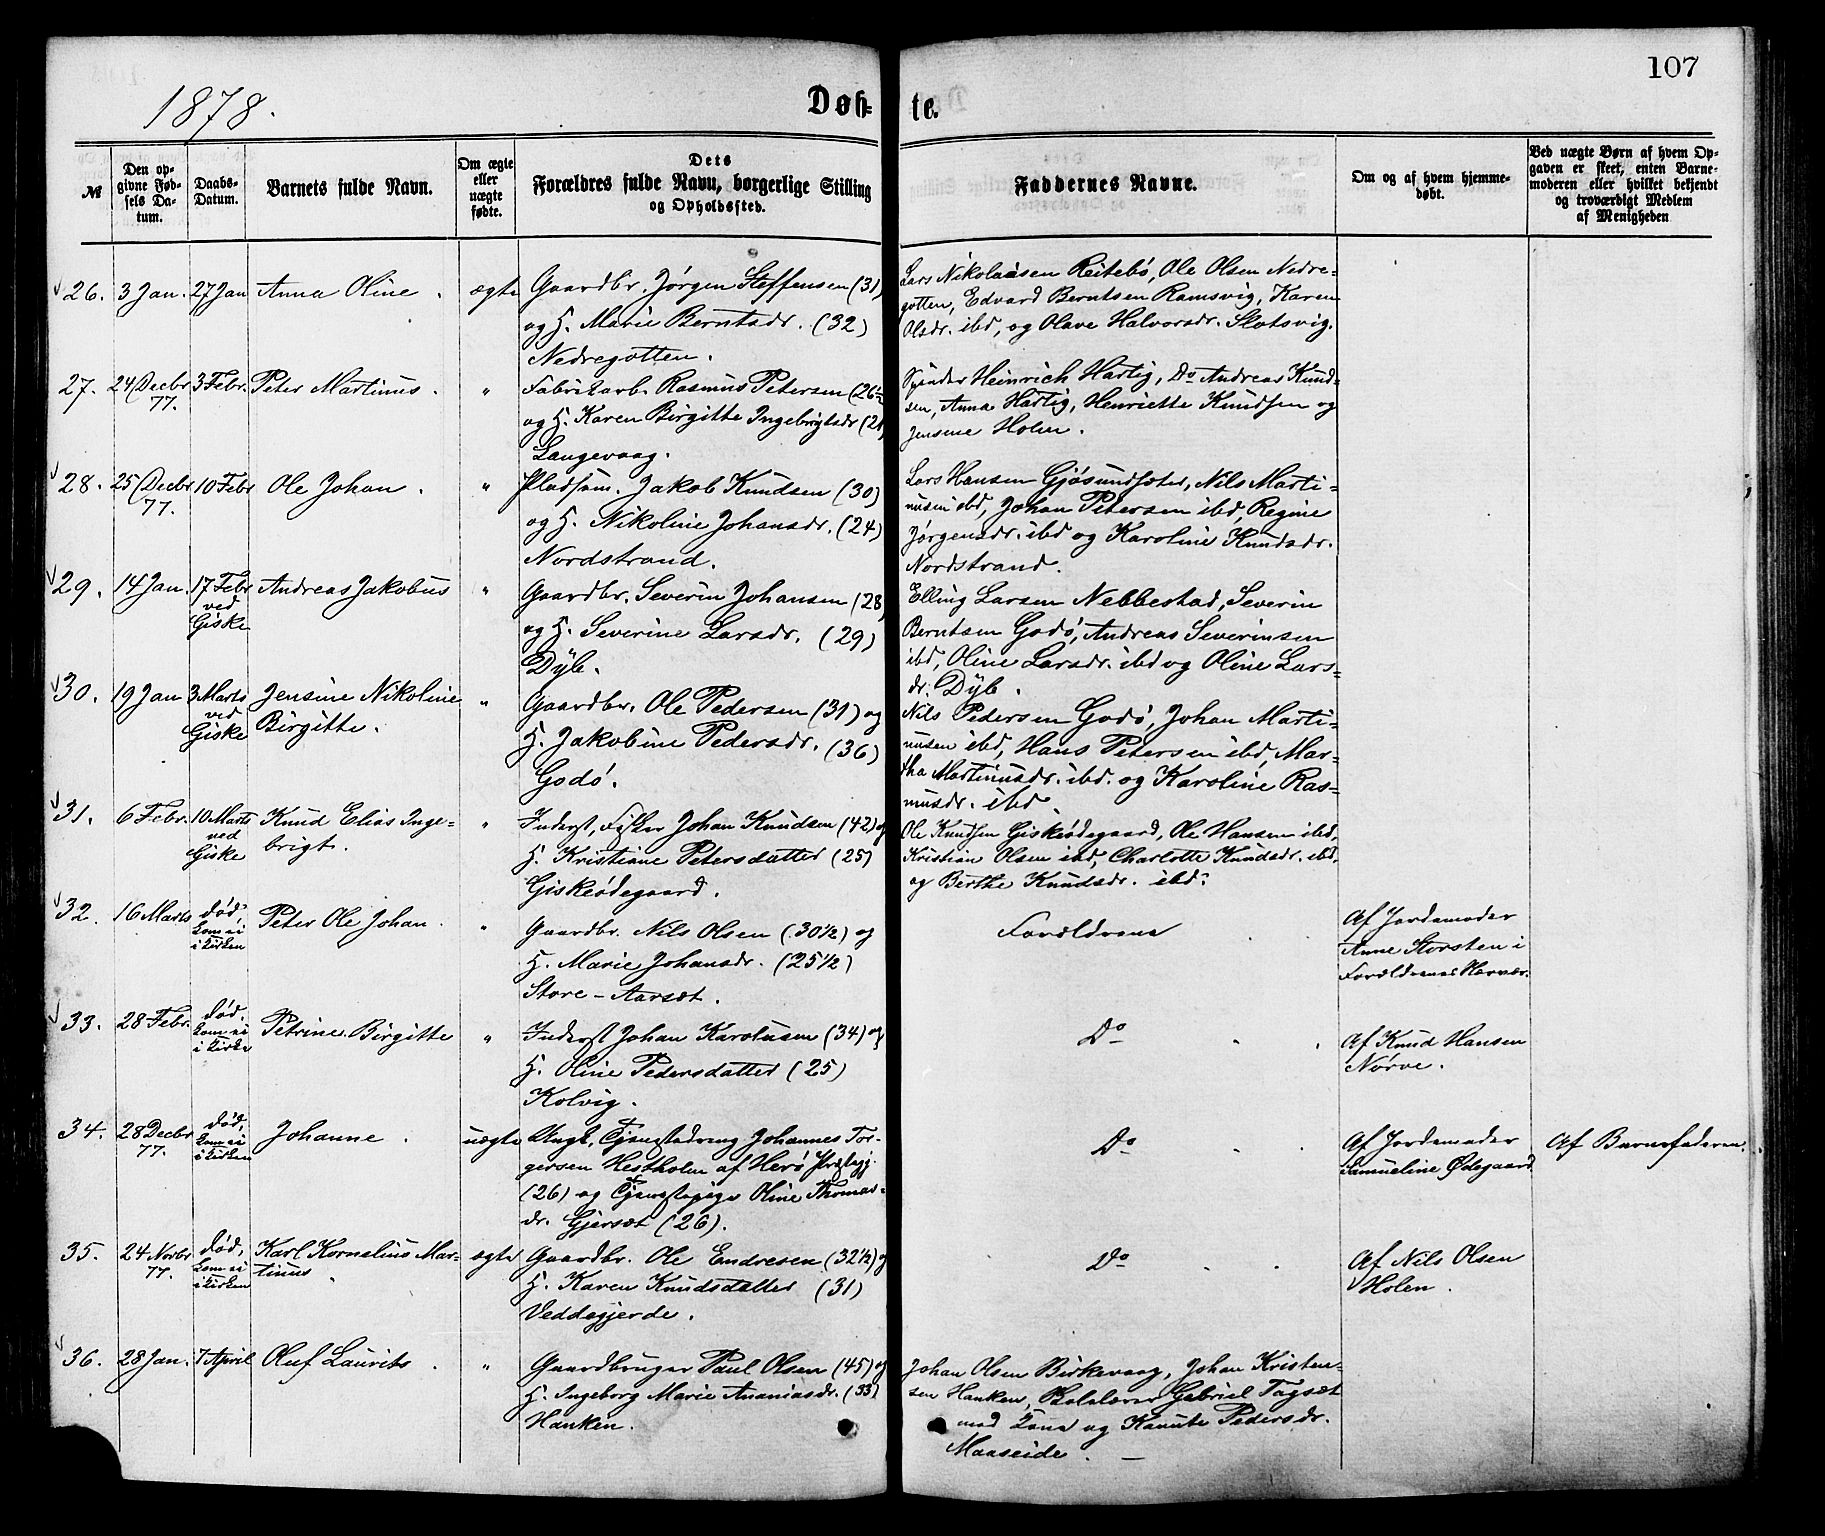 107
1878.
Døb-
te.
№
Den op-
givne Fød-
sels Da-
tum.
Daabs-
Datum.
Barnets fulde Navn.
Om ægte
eller
uægte
fødte.
Dets
Forældres fulde Navn, borgerlige Stilling
og Opholdssted.
Faddernes Navne.
Om og af hvem hjemme-
døbt.
Ved uægte Børn af hvem Op-
gaven er skeet, enten Barne-
moderen eller hvilket bekjendt
og troværdigt Medlem
af Menigheden
26. 3 Jan. 27 Jan Anna Oline. ægte
Gaardbr. Jørgen Steffensen (31)
og H. Marie Berntsdr. (32)
Nedregotten.
Lars Nikolaisen Reitebø, Ole Olsen Nedre-
gotten, Edvard Berntsen Ramsvig, Karen
Olsdr. ibd, og Olave Halvorsdr. Slotsvig.
27. 24 Decbr 77. 3 Febr. Peter Martinus. "
Fabrikarb. Rasmus Petersen (26½
og H. Karen Birgitte Ingebrigtsdr
Langevaag.
Spinder Heinrich Hartig, Do Andreas Knud-
sen, Anna Hartig, Henriette Knudsen og
Jensine Holen.
28. 25 Decbr 77. 10 Febr Ole Johan. "
Pladsm. Jakob Knudsen (30)
og H. Nikoline Johansdr. (24)
Nordstrand.
Lars Hansen Gjøsundsæter, Nils Marti-
nusen ibd, Johan Petersen ibd, Regine
Jørgensdr. ibd og Karoline Knudsdr.
Nordstrand.
29. 14 Jan. 17 Febr ved Giske Andreas Jakobus "
Gaardbr. Severin Johansen (28)
og H. Severine Larsdr. (29)
Dyb.
Elling Larsen Nebbestad, Severin
Berntsen Godø, Andreas Severinsen
ibd, Oline Larsdr. ibd og Oline Lars-
dr. Dyb.
30. 19 Jan 3 Marts ved Giske Jensine Nikoline
Birgitte. "
Gaardbr. Ole Pedersen (31) og
H. Jakobine Pedersdr. (36)
Godø.
Nils Pedersen Godø, Johan Marti-
nusen ibd, Hans Petersen ibd, Mar-
tha Martinusdr. ibd. og Karoline Ras-
musdr. ibd.
31. 6 Febr. 10 Marts ved Giske Knud Elias Inge-
brigt. "
Inderst, Fisker Johan Knudsen (42) og
H. Kristiane Petersdatter (25)
Giskeødegaard.
Ole Knudsen Giskeødegaard, Ole Hansen ibd,
Kristian Olsen ibd, Charlotte Knudsdr. ibd,
og Berthe Knudsdr. ibd.
32. 16 Marts død, kom ei i Kirken Peter Ole Johan. "
Gaardbr. Nils Olsen (30½) og
H. Marie Johansdr. (25½)
Store-Aarsæt.
Forældrene
Af Jordemoder
Anne Storsten i
Forældrenes Nærvær.
33. 28 Febr. død, kom ei i Kirke Petrine Birgitte "
Inderst Johan Karolusen (34) og
H. Oline Pedersdatter (25)
Kolvig.
Do
Af Knud Hansen
Nørve.
34. 28 Decbr 77. død, kom ei i Kirken Johanne. uægte
Ungk. Tjenestedreng Johannes Tor-
gersen Hestholm af Herø Præstegj.
(26) og Tjenestepige Oline Thomas-
dr. Gjersæt (26).
Do
Af Jordemoder
Samueline Ødegaard
Af Barnefaderen.
35. 24 Novbr 77. død, kom ei i Kirken Karl Kornelius Mar-
tinus ægte
Gaardbr. Ole Endresen (32½) og
H. Karen Knudsdatter (31)
Veddegjerde.
Do
Af Nils Olsen
Holen.
36. 28 Jan. 7 April Oluf Laurits. "
Gaardbruger Paul Olsen (45) og
H. Ingeborg Marie Ananiasdr. (33)
Hanken.
Johan Olsen Birkevaag, Johan Kristen-
sen Hanken, Gabriel Tagsæt
med Kone og Kanute Pedersdr.
Maaseide.